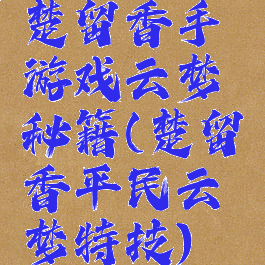 楚留香手
游戏云梦
秘籍(楚留
香平民云
梦特技)